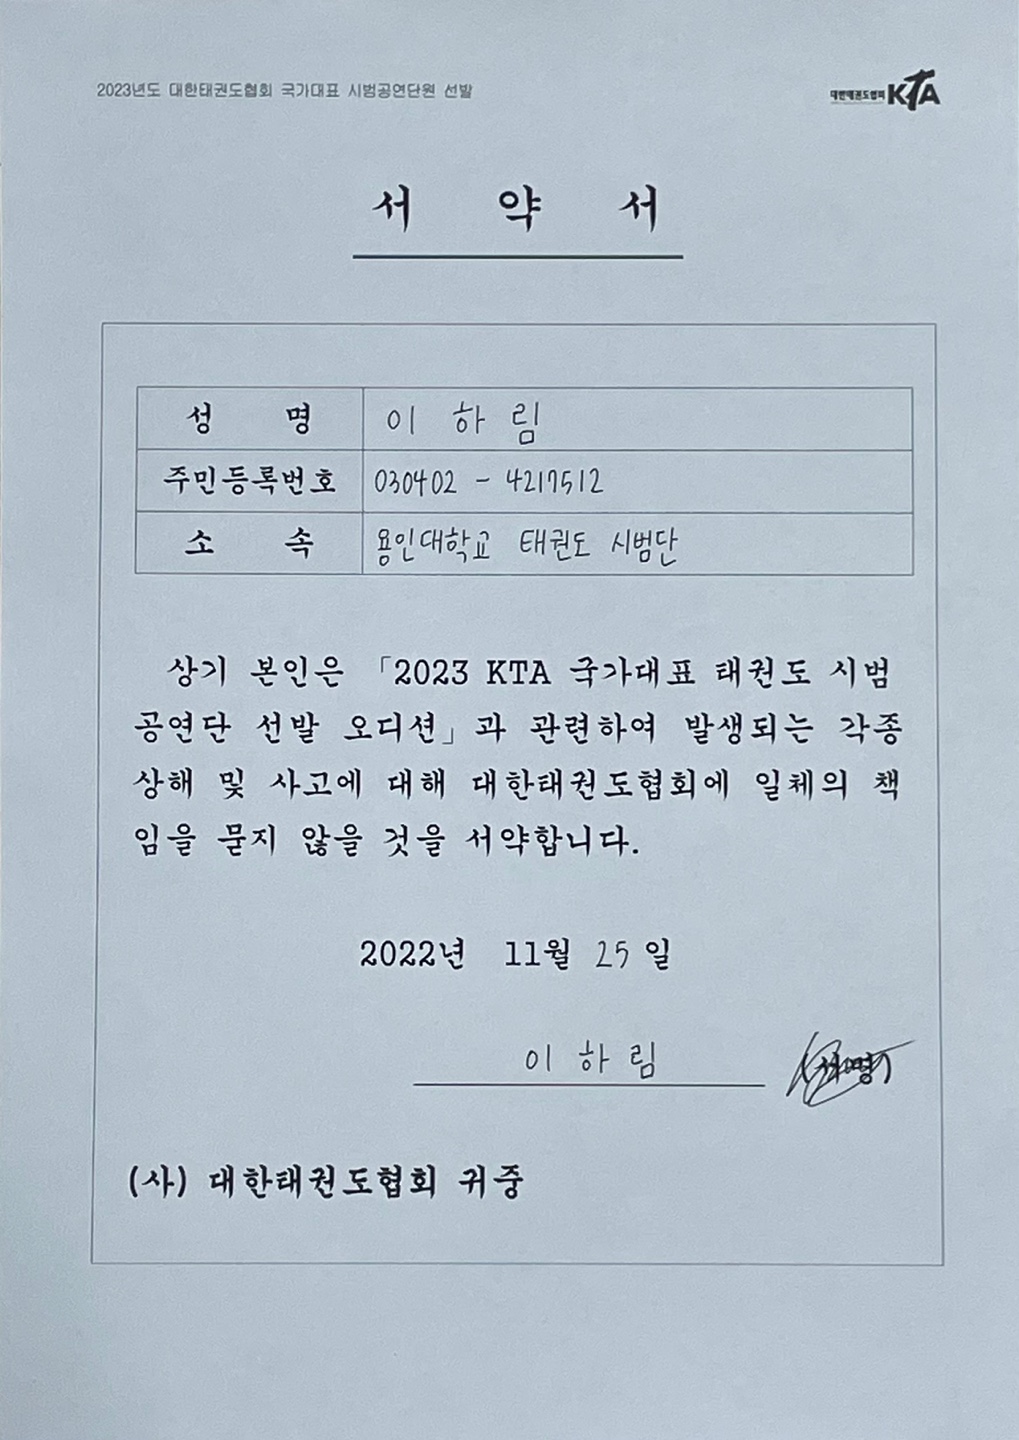 2023년도 대한태권도협회 국가대표 시범공연단원 선발
대한태권도협회 KTA
서 약 서
성 명 이 하 림
주민등록번호 030402 - 4217512
소 속 용인대학교 태권도 시범단
상기 본인은 「2023 KTA 국가대표 태권도 시범
공연단 선발 오디션」과 관련하여 발생되는 각종
상해 및 사고에 대해 대한태권도협회에 일체의 책
임을 묻지 않을 것을 서약합니다.
2022년 11월 25일
이 하 림 (서명)
(사) 대한태권도협회 귀중